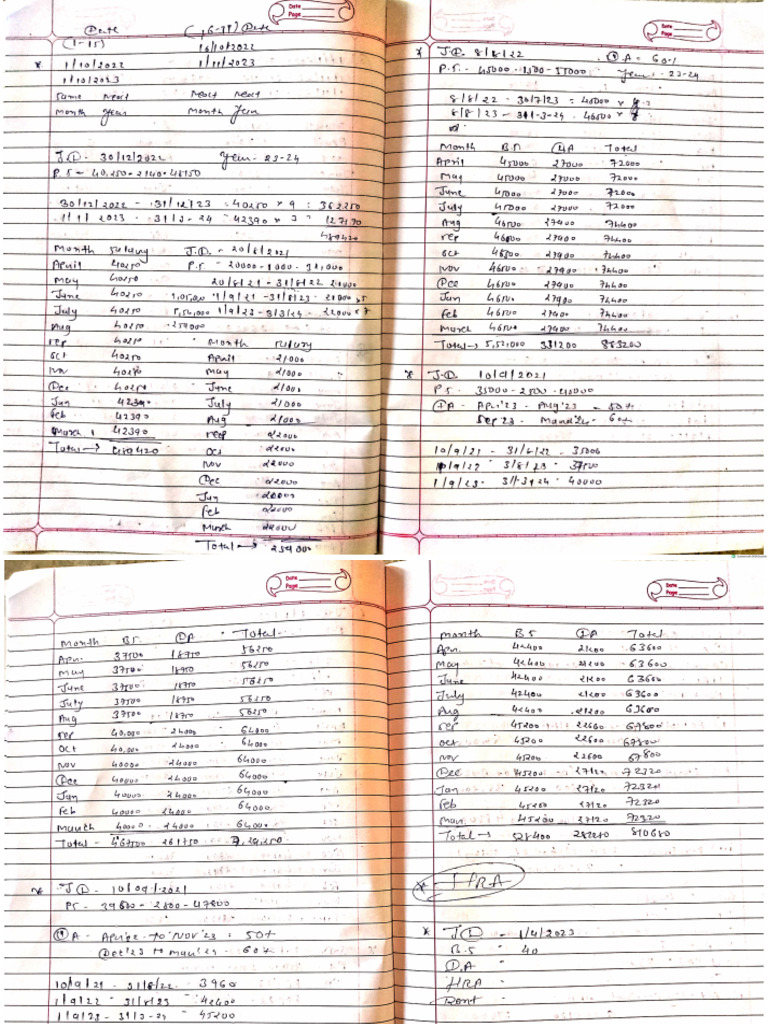 Date
Page
Date (16-31) Date
(1-15) 16/10/2022
* 1/10/2022 1/11/2023
1/10/2023
same next next next
month year month year
J.D - 30/12/2022 Year - 23-24
P.S - 40,250 - 2140 - 48150
30/12/2022 - 31/12/23 = 40250 × 9 = 362250
1/1/2023 - 31/3-24 42390 × 3 = 127170
489420
Month Salary J.D. - 20/8/2021
April 40250 P.S - 20000 - 1000 - 31,000
May 40250 20/8/21 - 31/8/22 20000
June 40250 1,05,000 1/9/21 - 31/8/23 - 21000 × 5
July 40250 1,54,000 1/9/23 - 3/3/24 - 22000 × 7
Aug 40250 259000
sep 40250 Month salary
oct 40250 April 21000
Nov 40250 May 21000
Dec 40250 June 21000
Jan 42390 July 21000
feb 42390 Aug 21000
March 42390 sep 22000
Total → 489420 Oct 22000
Nov 22000
Dec 22000
Jan 22000
Feb 22000
March 22000
Total → 259000
Date
Page
* J.D. 8/8/22 D A = 60%
P.S. - 45000 - 1500 - 55000 Year - 23-24
8/8/22 - 30/7/23 = 45000 ×
8/8/23 - 31-3-24 - 46500 ×
Month B.S DA Total
April 45000 27000 72000
May 45000 27000 72000
June 45000 27000 72000
July 45000 27000 72000
Aug 46500 27900 74400
sep 46500 27900 74400
oct 46500 27900 74400
Nov 46500 27900 74400
Dec 46500 27900 74400
Jan 46500 27900 74400
feb 46500 27900 74400
March 46500 27900 74400
Total → 5,52,000 331200 883200
* J.D. 10/9/2021
P.S. 35000 - 2500 - 40000
DA - Apr'23 - Aug'23 - 50%
Sep'23 - Mar'24 - 60%
10/9/21 - 31/8/22 - 35000
1/9/22 3/8/23 - 37500
1/9/23 - 31/3/24 - 40000
Date
Page
Month BS DA Total
Apr. 37500 18750 56250
May 37500 18750 56250
June 37500 18750 56250
July 37500 18750 56250
Aug 37500 18750 56250
sep 40,000 24000 64000
oct 40,000 24000 64000
Nov 40000 24000 64000
Dec 40000 24000 64000
Jan 40000 24000 64000
feb 40000 24000 64000
March 40000 24000 64000
Total - 467500 261750 7,29,250
* J D - 10/09/2021
PS - 39600 - 2800 - 47800
D A - Apr'22 to Nov'23 = 50%
Dec'23 to Mar'24 - 60%
10/9/21 - 31/8/22 3960
1/9/22 - 31/8/23 - 42400
1/9/23 - 31/3-24 - 45200
Date
Page
Month B S DA Total
Apr. 42400 21200 63600
May 42400 21200 63600
June 42400 21200 63600
July 42400 21200 63600
Aug 42400 21200 63600
sep 45200 22600 67800
oct 45200 22600 67800
Nov 45200 22600 67800
Dec 45200 27120 72320
Jan 45200 27120 72320
Feb 45200 27120 72320
Mar 45200 27120 72320
Total → 528400 282280 810680
* HRA
* JD - 1/4/2023
B.S - 40
D.A
HRA
Rent